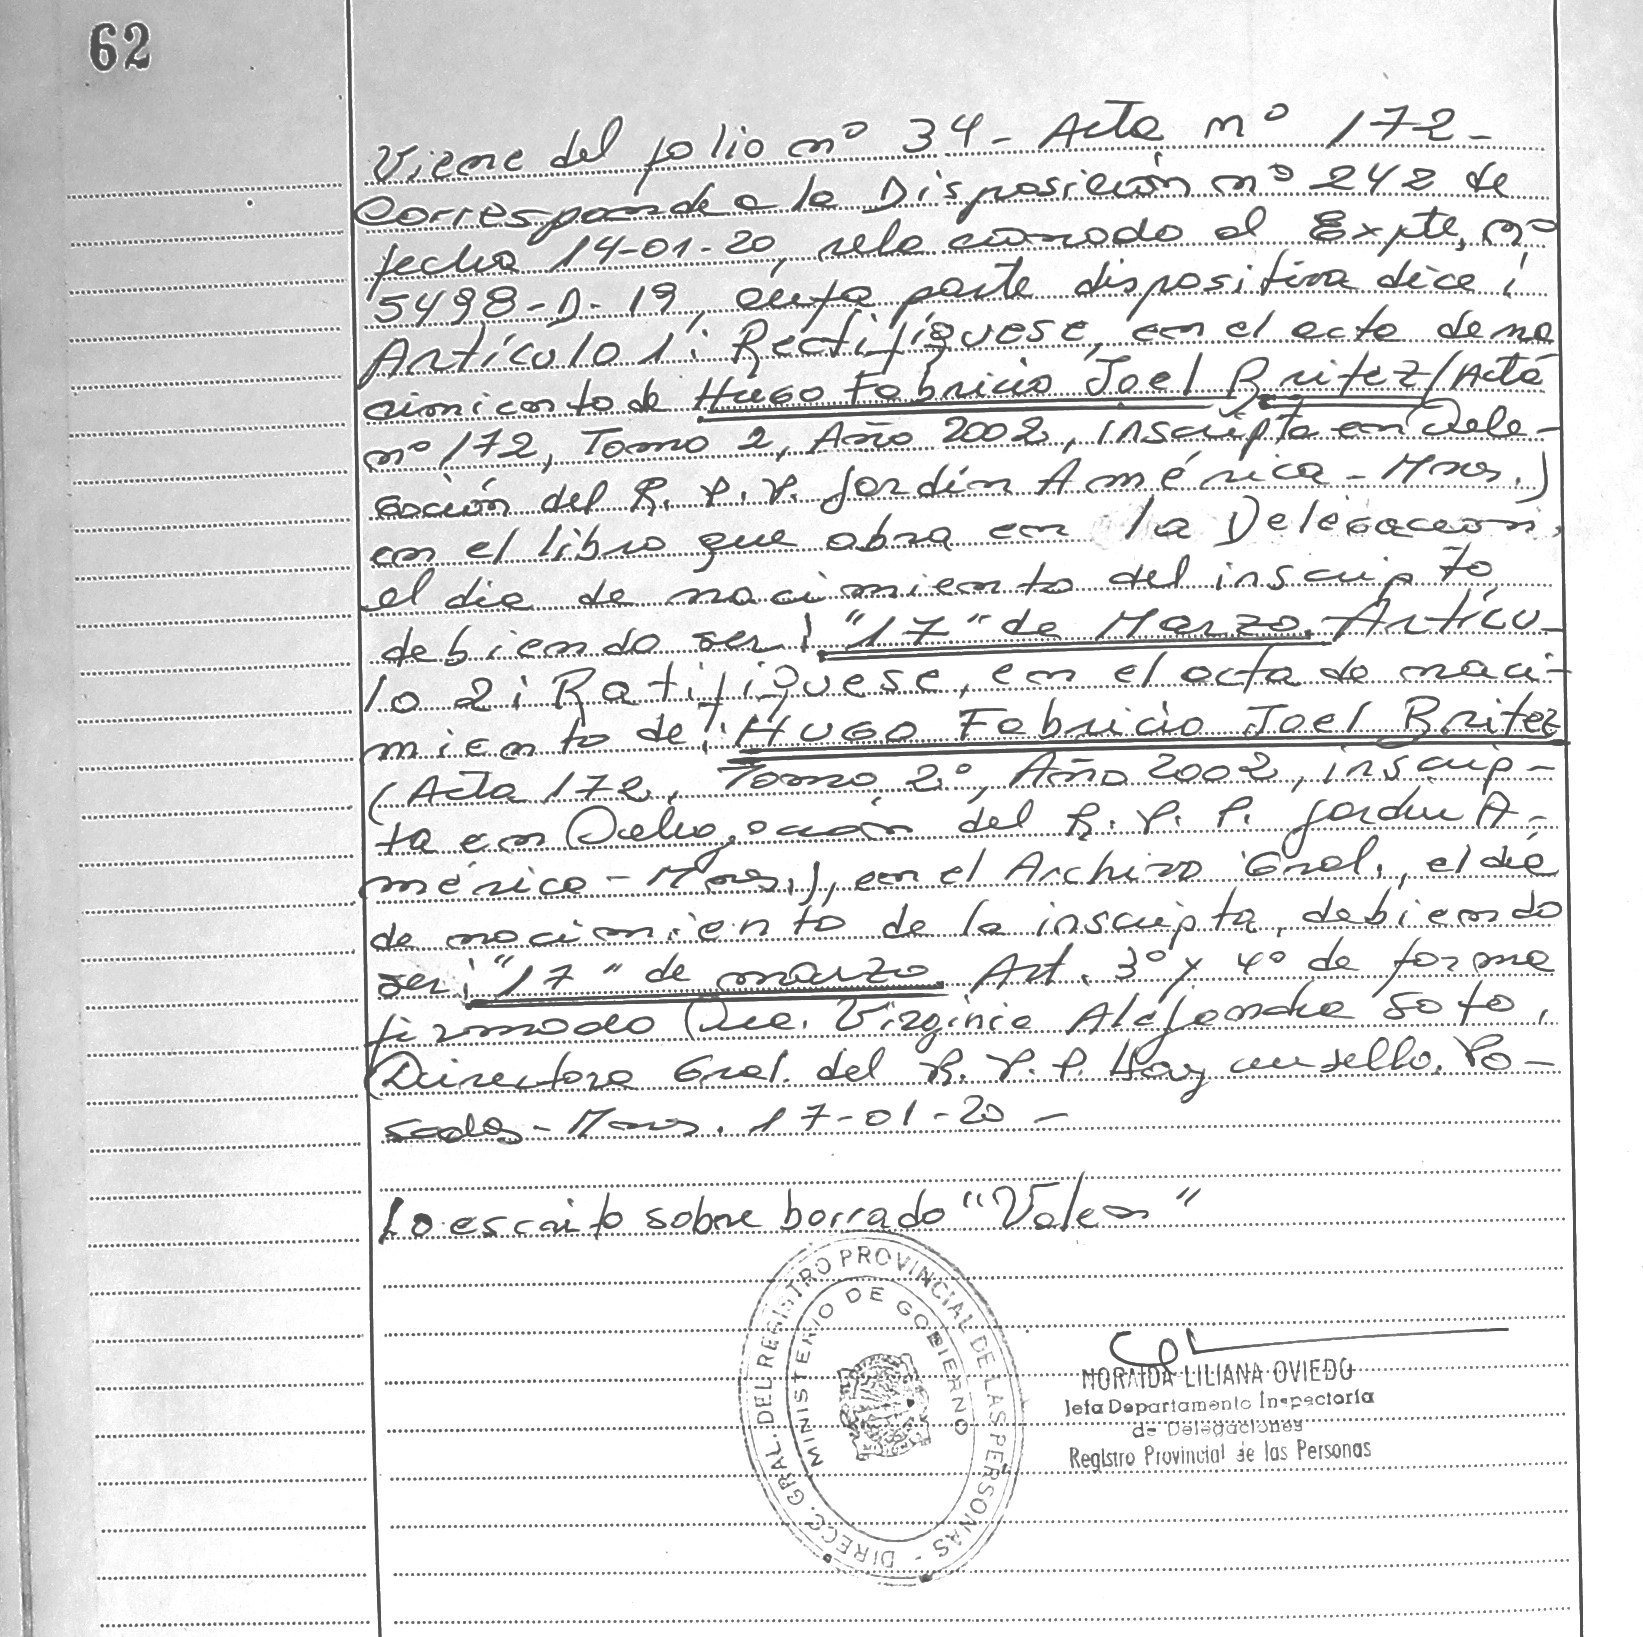 62
Viene del folio nº 34 - Acta nº 172 -
Corresponde a la Disposición nº 242 de
fecha 14-01-20, relacionado al Expte, nº
5498-D-19, cuya parte dispositiva dice:
Artículo 1: Rectifíquese, en el acta de na
cimiento de Hugo Fabricio Joel Britez (Acta
nº 172, Tomo 2, Año 2002, inscripta en Dele-
gación del R. P. P. Jardín América - Mnes.)
en el libro que obra en la Delegación,
el dia de nacimiento del inscripto,
debiendo ser: "17" de Marzo. Artícu-
lo 2: Ratifíquese, en el acta de naci-
miento de: Hugo Fabricio Joel Britez
(Acta 172, Tomo 2º, Año 2002, inscrip-
ta en Delegación del R. P. P. Jardin A-
mérica - Mnes.), en el Archivo Gral., el dia
de nacimiento de la inscripta, debiendo
ser: "17" de marzo. Art. 3º y 4º de forma
firmado Virginia Alejandra Soto,
Directora Gral. del R. P. P. Hay un sello. Po-
sadas - Mnes. 17-01-20 -
Lo escrito sobre borrado "Valen"
DIRECC. GRAL. DEL REGISTRO PROVINCIAL DE LAS PERSONAS -
MINISTERIO DE GOBIERNO
NORAIDA LILIANA OVIEDO
Jefa Departamento Inspectoría
de Delegaciones
Registro Provincial de las Personas